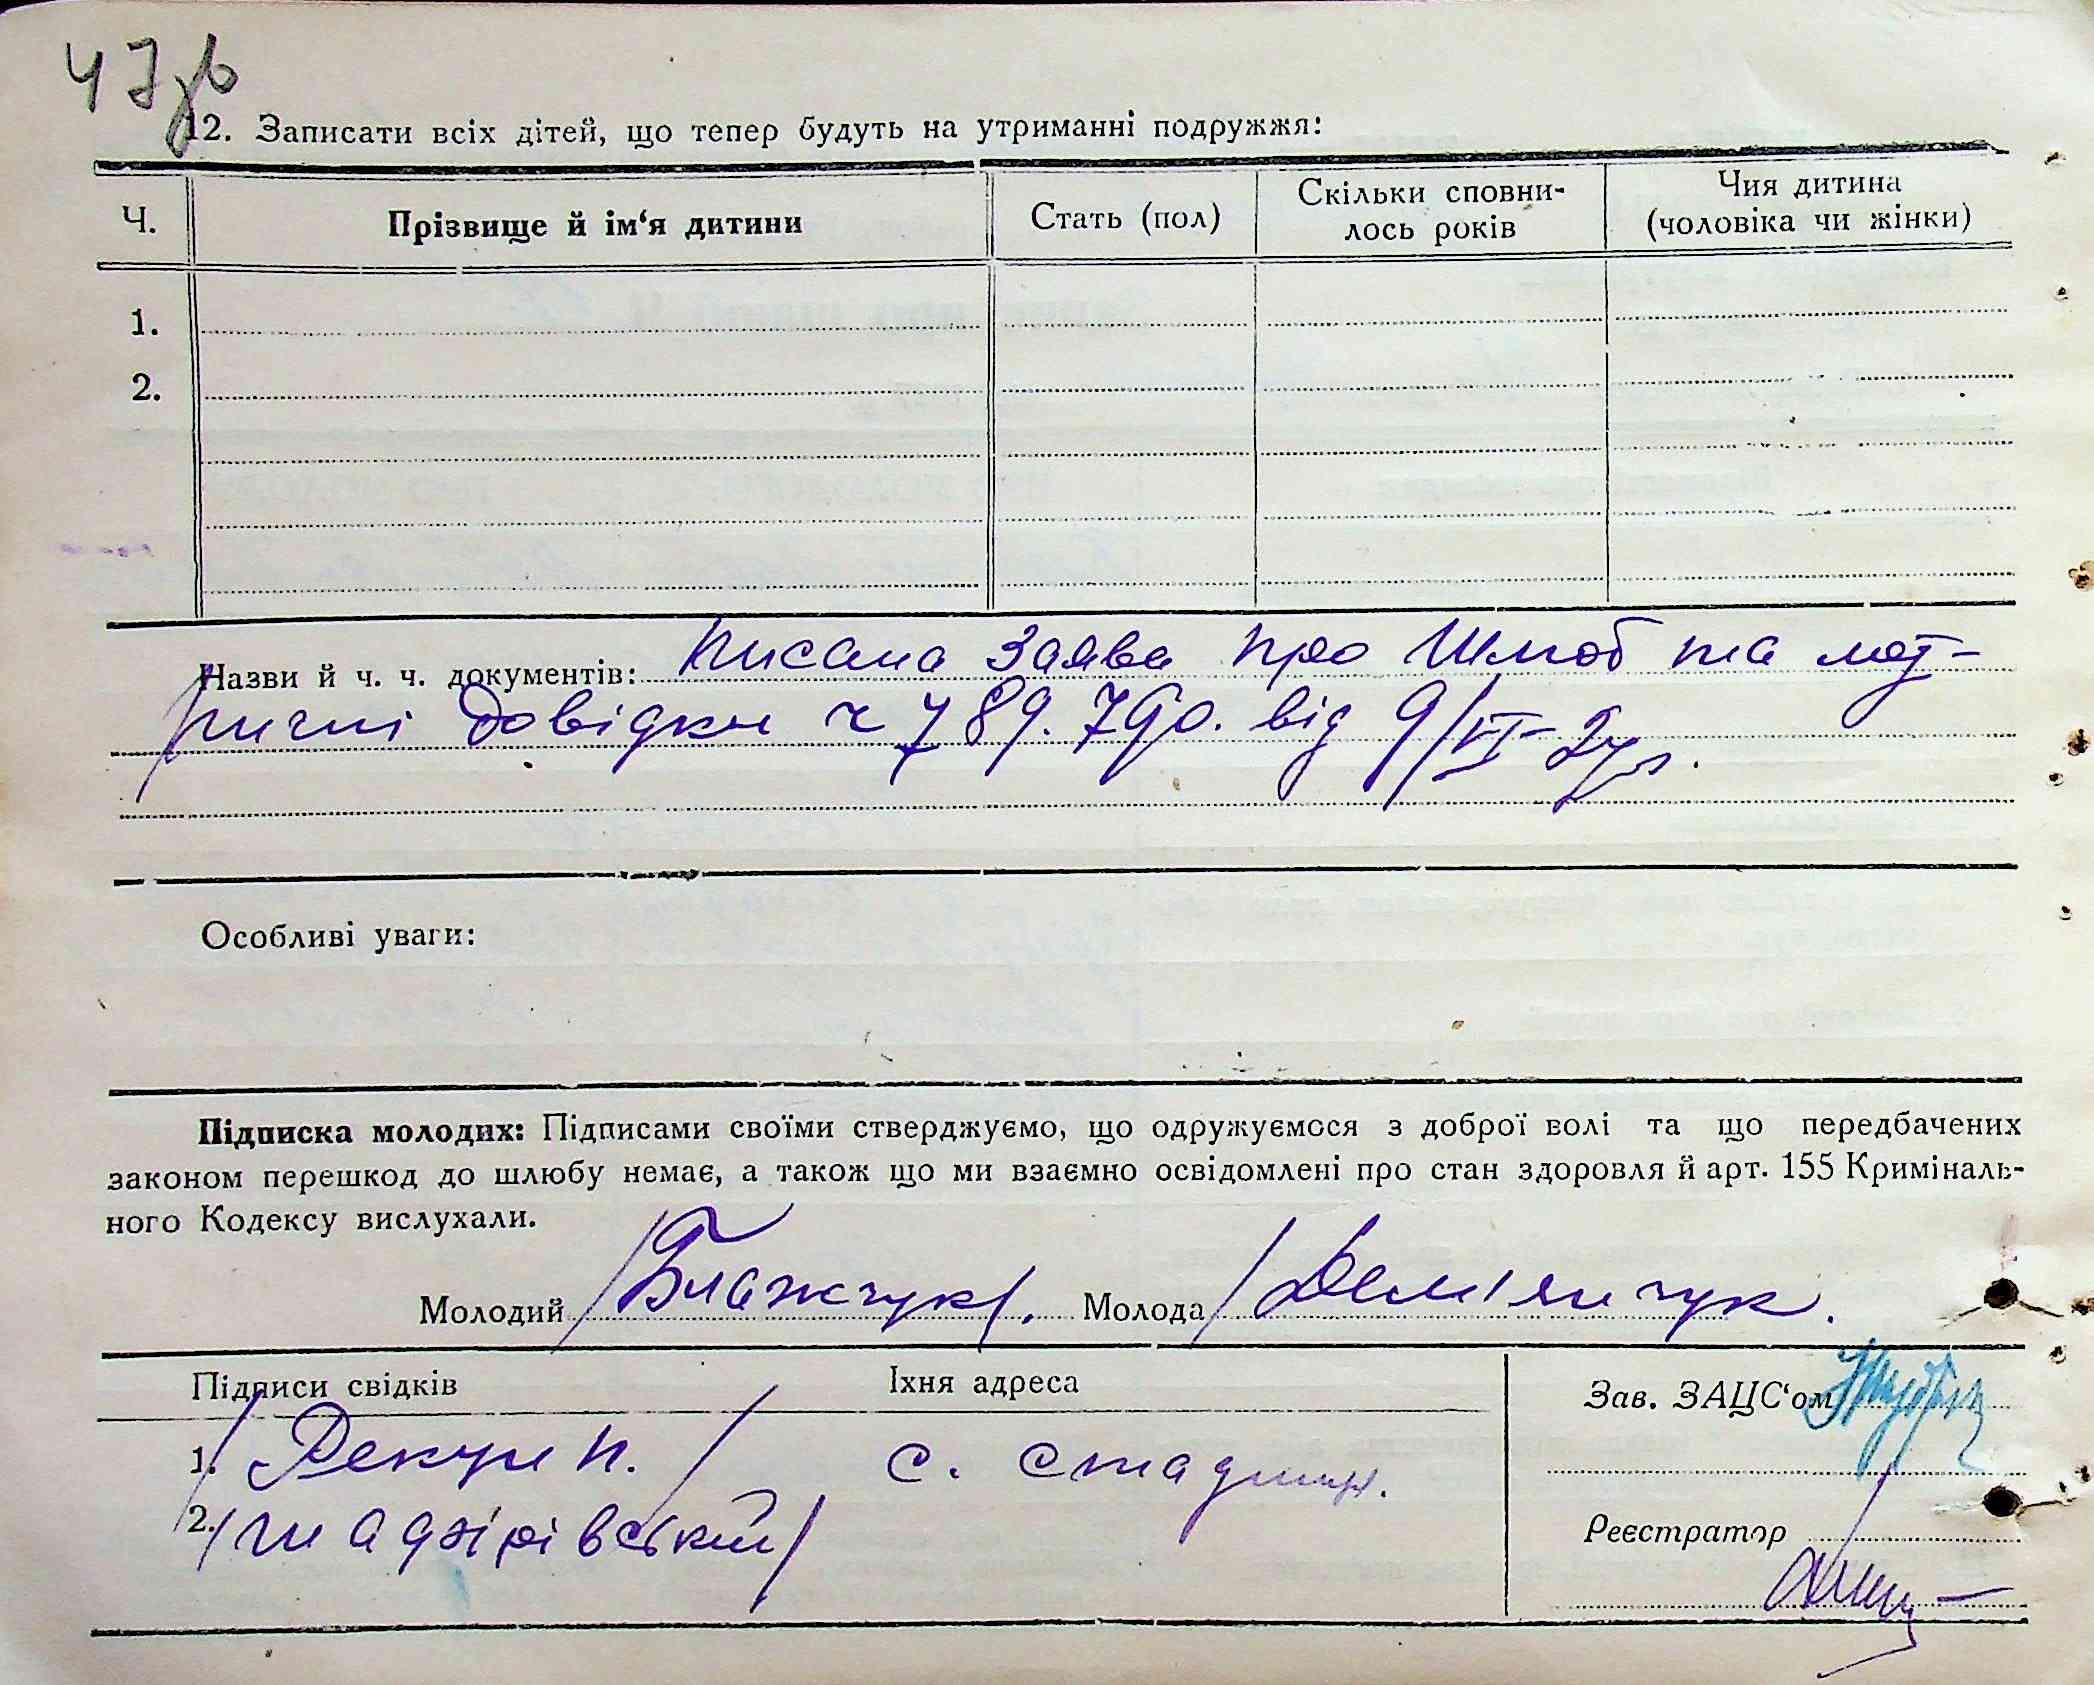 47зв
12. Записати всіх дітей, що тепер будуть на утриманні подружжя:
Ч. Прізвище й ім‘я дитини Стать (пол) Скільки сповни-лось років Чия дитина (чоловіка чи жінки)
1.
2.
Назви й ч. ч. документів: писана заява про шлюб та мет-
ричні довідки ч 789. 790. від 9/VI-27р.
Особливі уваги:
Підписка молодих: Підписами своїми стверджуємо, що одружуємося з доброї волі та що передбачених
законом перешкод до шлюбу немає, а також що ми взаємно освідомлені про стан здоровля й арт. 155 Криміналь-
ного Кодексу вислухали.
Молодий /Блажчук/. Молода /Демʼянчук.
Підписи свідків Їхня адреса Зав. ЗАЦС‘ом
1. / Рекун П. / с.
2. / /
Реєстратор